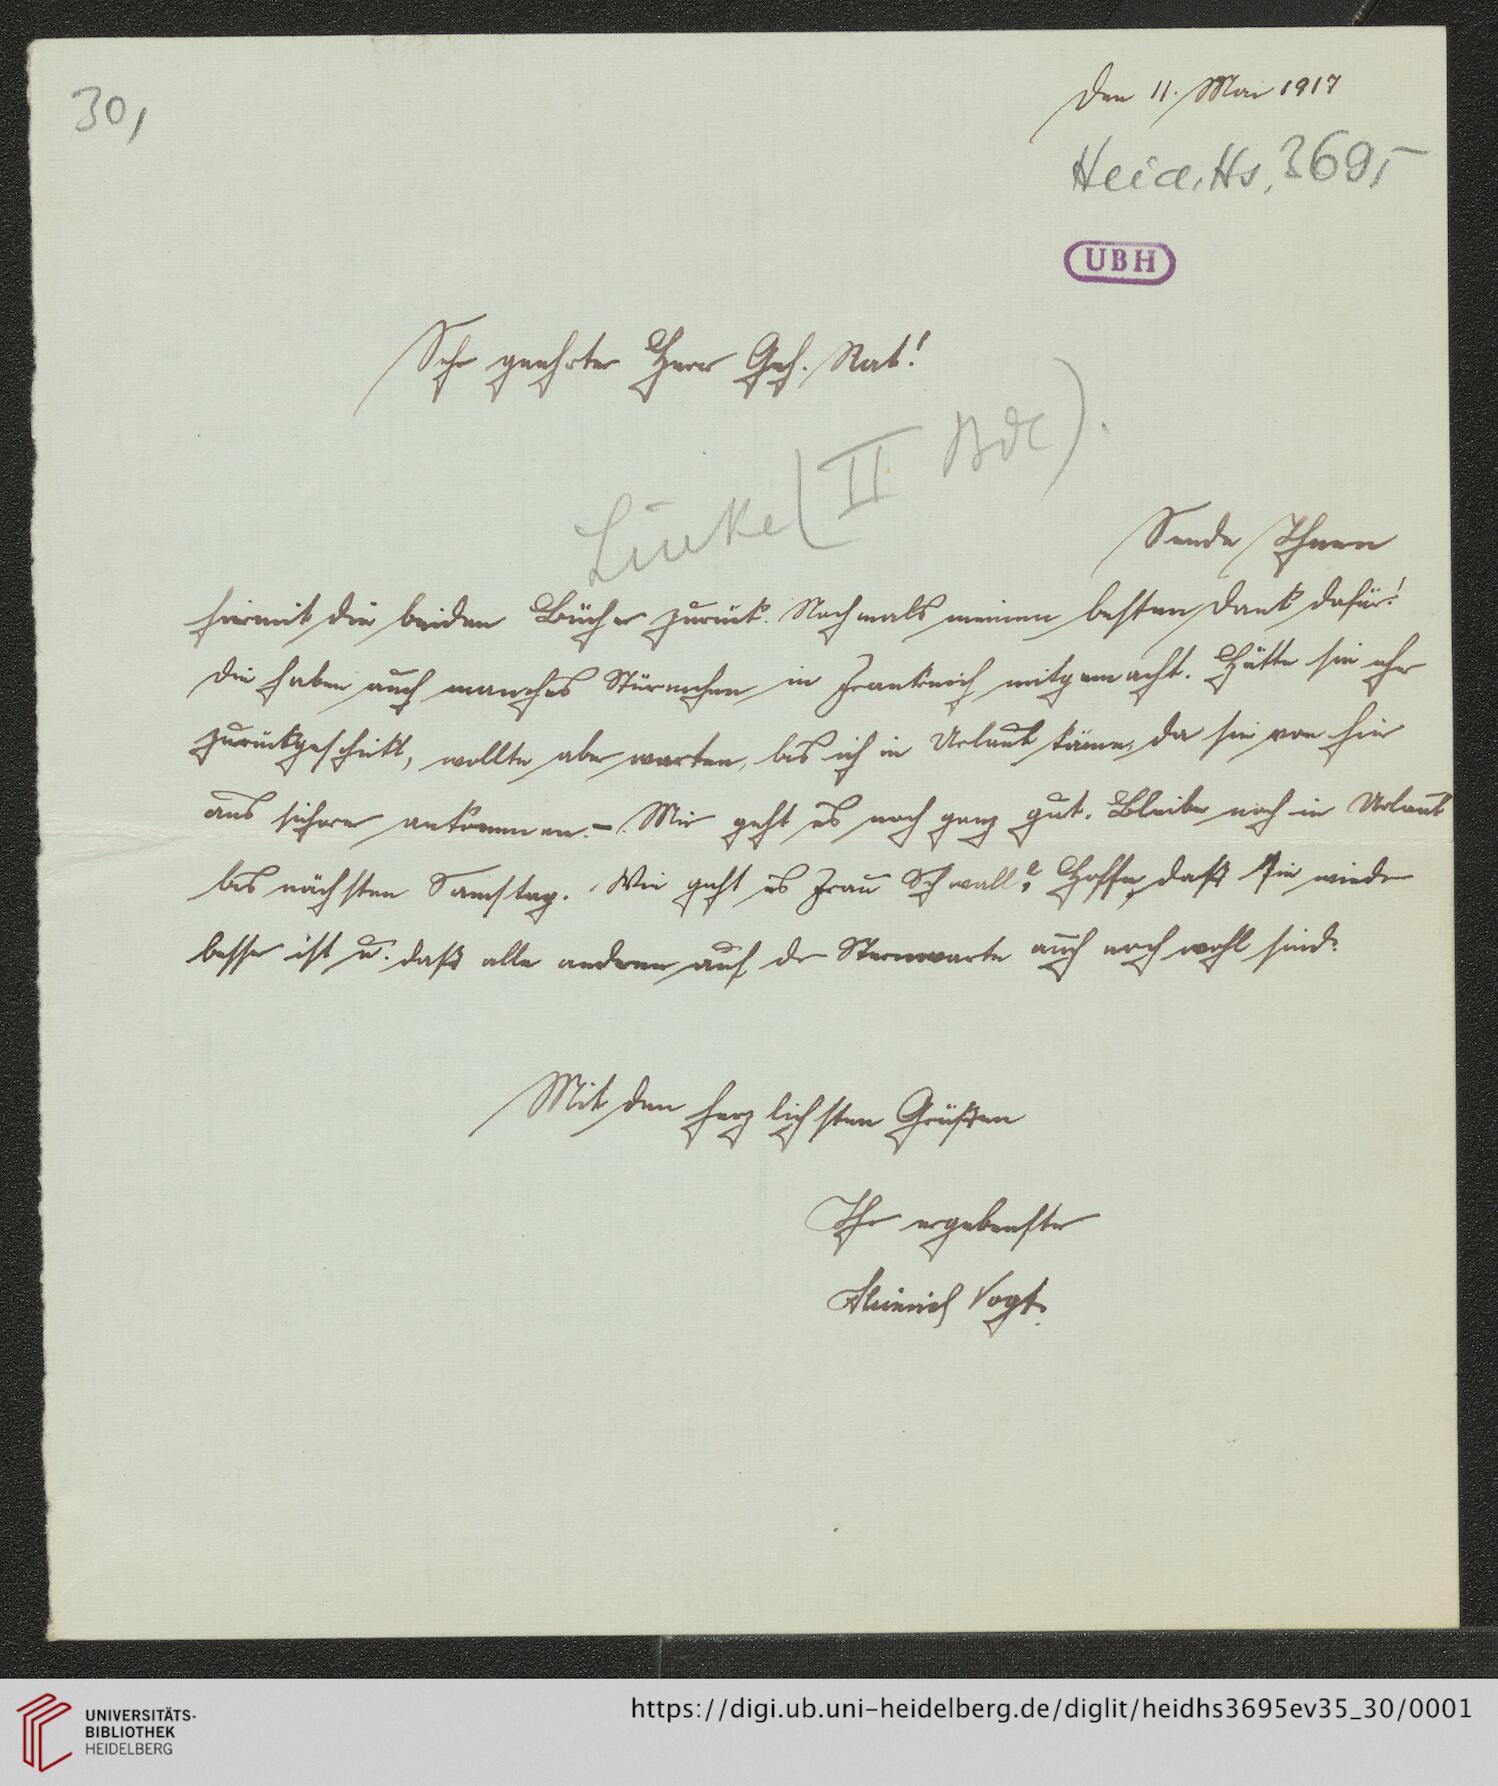 30,
Den 11. Mai 1917
Heid. Hs. 3695
UBH
Sehr geehrter Herr Geh. Rat!
Linke (II Bde).
Sende Ihnen
hiermit die beiden Bücher zurück. Nochmals meinen besten Dank dafür!
Die haben auch manches Stürmchen in Frankreich mitgemacht. Hätte sie eher
zurückgeschickt, wollte aber warten, bis ich in Urlaub käme, da sie von hier
aus sicherer ankommen. – Mir geht es noch ganz gut. Bleibe noch in Urlaub
bis nächsten Samstag. Wie geht es Frau Schwall? Hoffe, daß sie wieder
besser ist u. daß alle anderen auf der Sternwarte auch noch wohl sind.
Mit den herzlichsten Grüßen
Ihr ergebenster
Heinrich Vogt.
UNIVERSITÄTS-
BIBLIOTHEK
HEIDELBERG
https://digi.ub.uni-heidelberg.de/diglit/heidhs3695ev35_30/0001